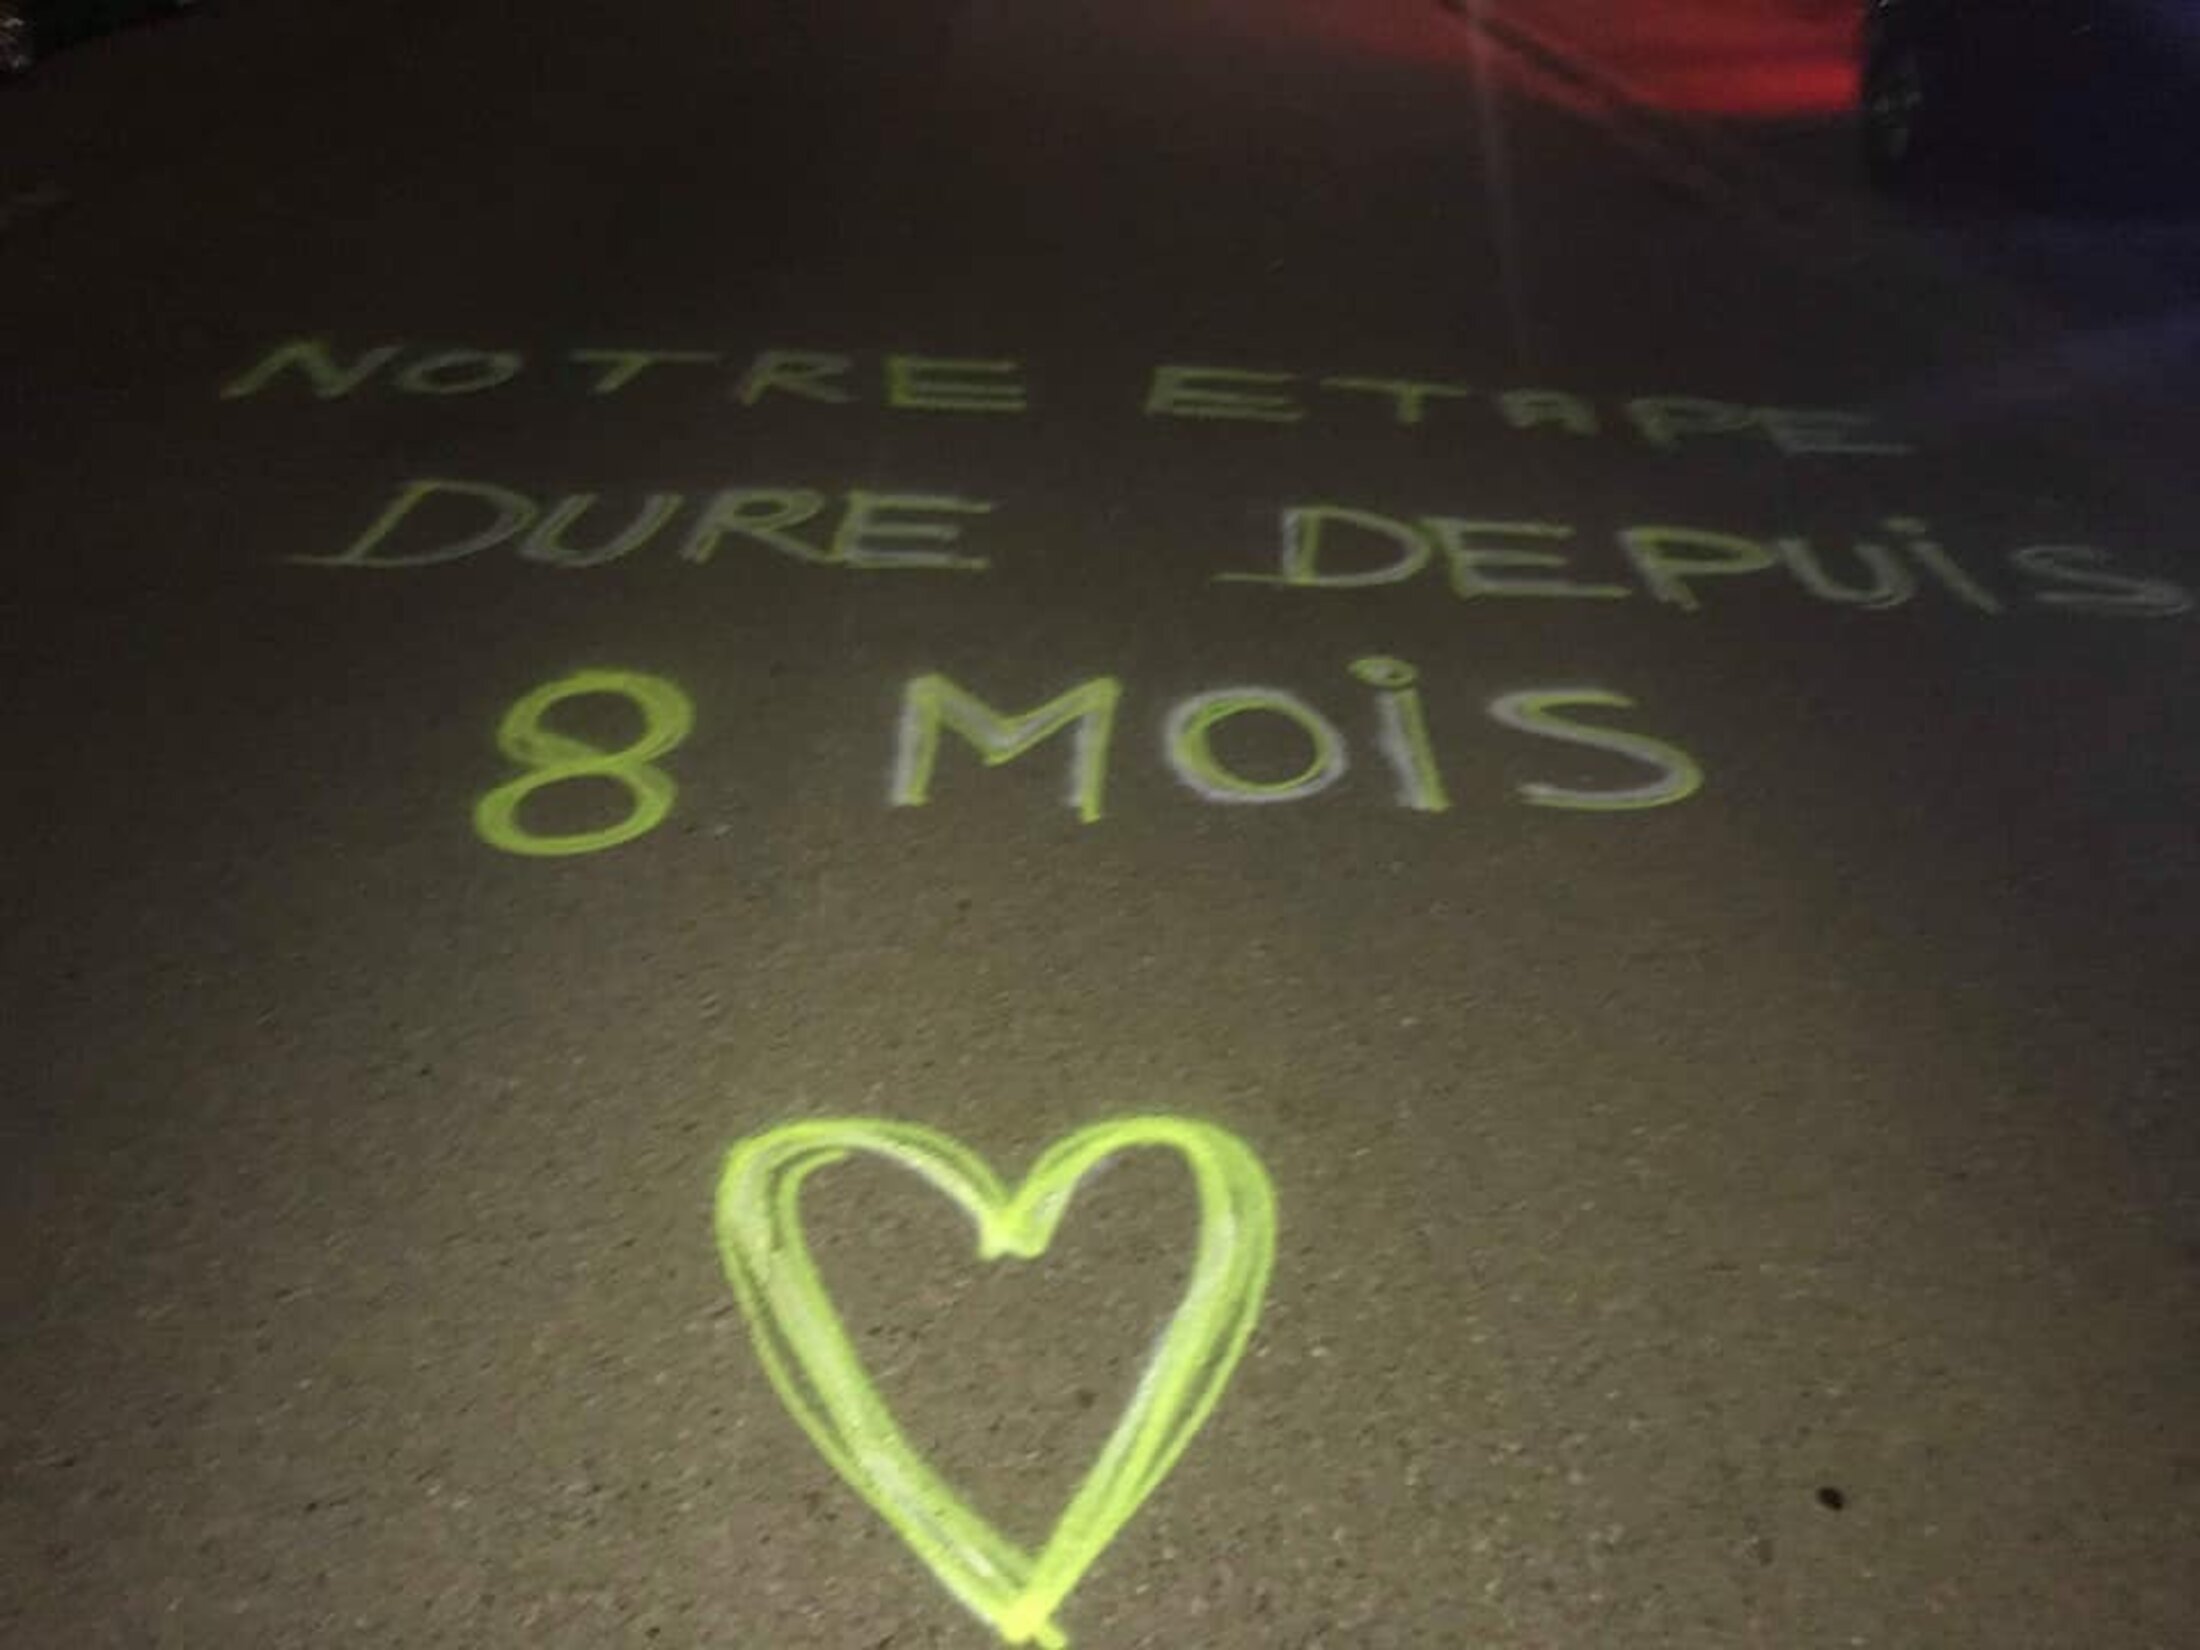 NOTRE ETAPE
DURE DEPUiS
8 MOiS